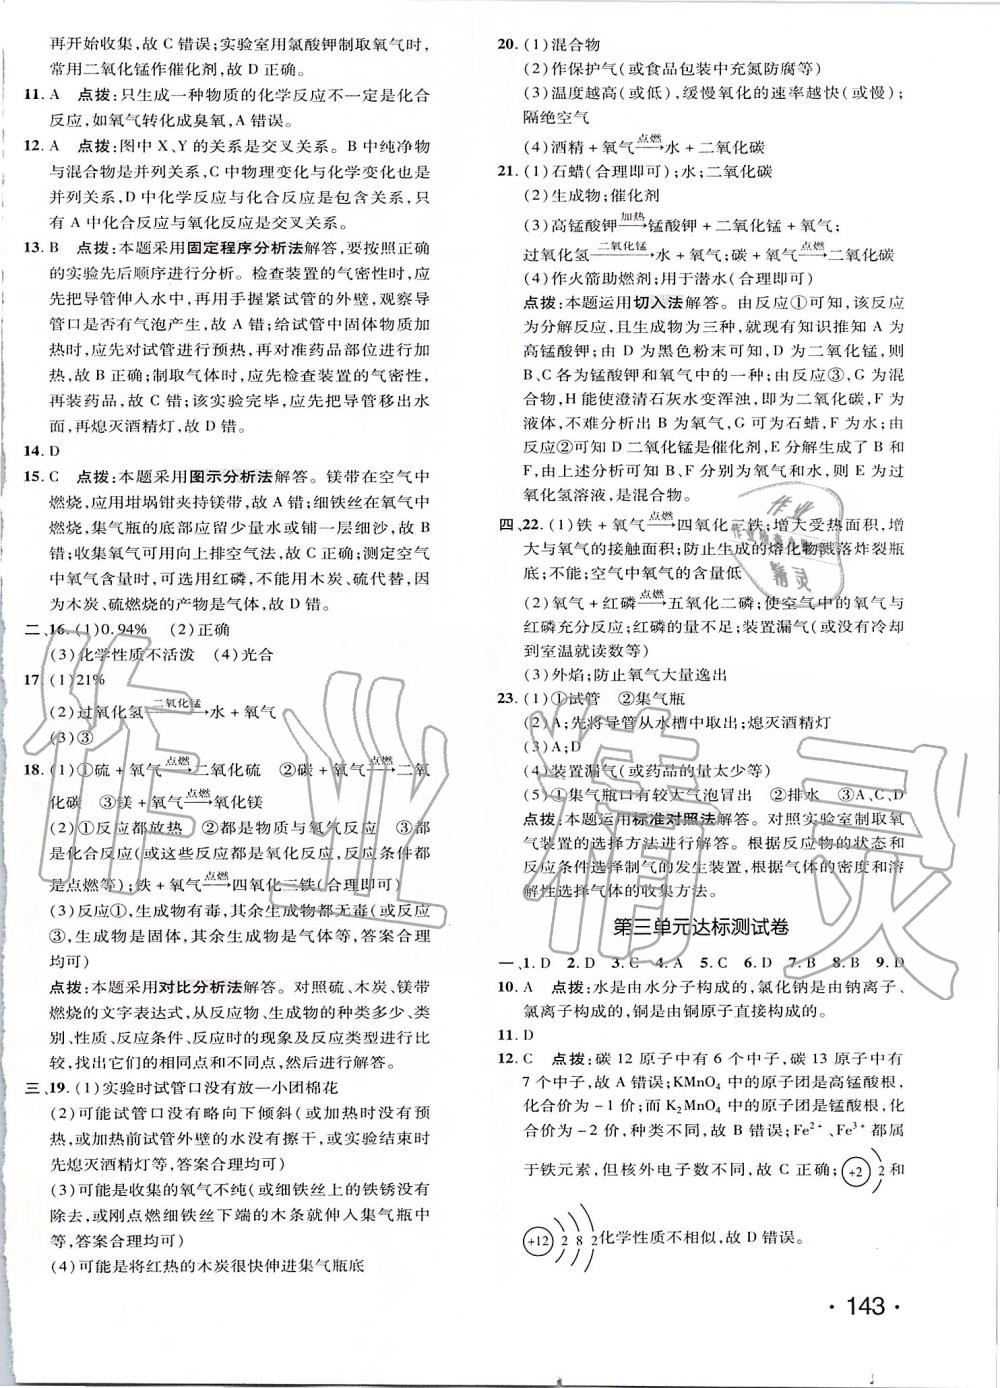 再开始收集,故 C 错误;实验室用氯酸钾制取氧气时,
常用二氧化锰作催化剂,故 D 正确。
11. A 点拨:只生成一种物质的化学反应不一定是化合
反应,如氧气转化成臭氧,A 错误。
12. A 点拨:图中 X、Y 的关系是交叉关系。B 中纯净物
与混合物是并列关系,C 中物理变化与化学变化也是
并列关系,D 中化学反应与化合反应是包含关系。只
有 A 中化合反应与氧化反应是交叉关系。
13. B 点拨:本题采用固定程序分析法解答,要按照正确
的实验先后顺序进行分析。检查装置的气密性时,应
先把导管伸入水中,再用手握紧试管的外壁,观察导
管口是否有气泡产生,故 A 错;给试管中固体物质加
热时,应先对试管进行预热,再对准药品部位进行加
热,故 B 正确;制取气体时,应先检查装置的气密性,
再装药品,故 C 错;该实验完毕,应先把导管移出水
面,再熄灭酒精灯,故 D 错。
14. D
15. C 点拨:本题采用图示分析法解答。镁带在空气中
燃烧,应用坩埚钳夹持镁带,故 A 错;细铁丝在氧气中
燃烧,集气瓶的底部应留少量水或铺一层细沙,故 B
错;收集氧气可用向上排空气法,故 C 对;测定空气中
氧气含量时,可选用红磷,不能用木炭、硫代替红磷,因
为木炭、硫燃烧的产物是气体,故 D 错。
二、16. (1)0.94% (2)正确
(3)化学性质不活泼 (4)光合
17. (1)21%
(2)过氧化氢 二氧化锰→ 水 + 氧气
(3)③
18. (1)①硫 + 氧气 点燃→ 二氧化硫 ②碳 + 氧气 点燃→ 二氧
化碳 ③镁 + 氧气 点燃→ 氧化镁
(2)①反应都放热 ②都是物质与氧气反应 ③都
是化合反应(或这些反应都是氧化反应,反应条件都
是点燃等);铁 + 氧气 点燃→ 四氧化三铁(合理即可)
(3)反应①,生成物有毒,其余生成物都无毒(或反应
③,生成物是固体,其余生成物是气体等,答案合理
均可)
点拨:本题采用对比分析法解答。对照硫、木炭、镁带
燃烧的文字表达式,从反应物、生成物的种类多少、类
别、性质、反应条件、反应时的现象及反应类型进行比
较,找出它们的相同点和不同点,然后进行解答。
三、19. (1)实验时试管口没有放一小团棉花
(2)可能试管口没有略向下倾斜(或加热时没有预
热,或加热前试管外壁的水没有擦干,或实验结束时
先熄灭酒精灯等,答案合理均可)
(3)可能是收集的氧气不纯(或细铁丝上的铁锈没有
除去,或刚点燃细铁丝下端的木条就伸入集气瓶中
等,答案合理均可)
(4)可能是将红热的木炭很快伸进集气瓶底
20. (1)混合物
(2)作保护气(或食品包装中充氮防腐等)
(3)温度越高(或低),缓慢氧化的速率越快(或慢);
隔绝空气
(4)酒精 + 氧气 点燃→ 水 + 二氧化碳
21. (1)石蜡(合理即可);水;二氧化碳
(2)生成物;催化剂
(3)高锰酸钾 加热→ 锰酸钾 + 二氧化锰 + 氧气;
过氧化氢 二氧化锰→ 水 + 氧气;碳 + 氧气 点燃→ 二氧化碳
(4)作火箭助燃剂;用于潜水(合理即可)
点拨:本题运用切入法解答。由反应①可知,该反应
为分解反应,且生成物为三种,就现有知识推知 A 为
高锰酸钾;由 D 为黑色粉末可知,D 为二氧化锰,则
B、C 各为锰酸钾和氧气中的一种;由反应③,G 为混
合物,H 能使澄清石灰水变浑浊,即为二氧化碳,F 为
液体,不难分析出 B 为氧气,可知 G 为石蜡,F 为水;由
反应②可知 D 二氧化锰是催化剂,E 分解生成了 B 和
F,由上述分析可知 B、F 分别为氧气和水,则 E 为过
氧化氢溶液,是混合物。
四、22. (1)铁 + 氧气 点燃→ 四氧化三铁;增大受热面积,增
大与氧气的接触面积;防止生成的熔化物溅落炸裂瓶
底;不能;空气中氧气的含量低
(2)氧气 + 红磷 点燃→ 五氧化二磷;使空气中的氧气与
红磷充分反应;红磷的量不足;装置漏气(或没有冷却
到室温就读数等)
(3)外焰;防止氧气大量逸出
23. (1)①试管 ②集气瓶
(2)A;先将导管从水槽中取出;熄灭酒精灯
(3)A;D
(4)装置漏气(或药品的量太少等)
(5)①集气瓶口有较大气泡冒出 ②排水 ③A、C、D
点拨:本题运用标准对照法解答。对照实验室制取氧
气装置的选择方法进行解答。根据反应物的状态和
反应条件选择制气的发生装置,根据气体的密度和溶
解性选择气体的收集方法。
第三单元达标测试卷
一、1. D 2. D 3. C 4. A 5. C 6. D 7. B 8. B 9. D
10. A 点拨:水是由水分子构成的,氯化钠是由钠离子、
氯离子构成的,铜是由铜原子直接构成的。
11. D
12. C 点拨:碳 12 原子中有 6 个中子,碳 13 原子中有
7 个中子,故 A 错误;KMnO₄ 中的原子团是高锰酸根,
化合价为 −1 价;而 K₂MnO₄ 中的原子团是锰酸根,化
合价为 −2 价,种类不同,故 B 错误;Fe²⁺、Fe³⁺都属
于铁元素,但核外电子数不同,故 C 正确; +2 2 和
+12 2 8 2 化学性质不相似,故 D 错误。
· 143 ·
作业精灵
作业
精灵